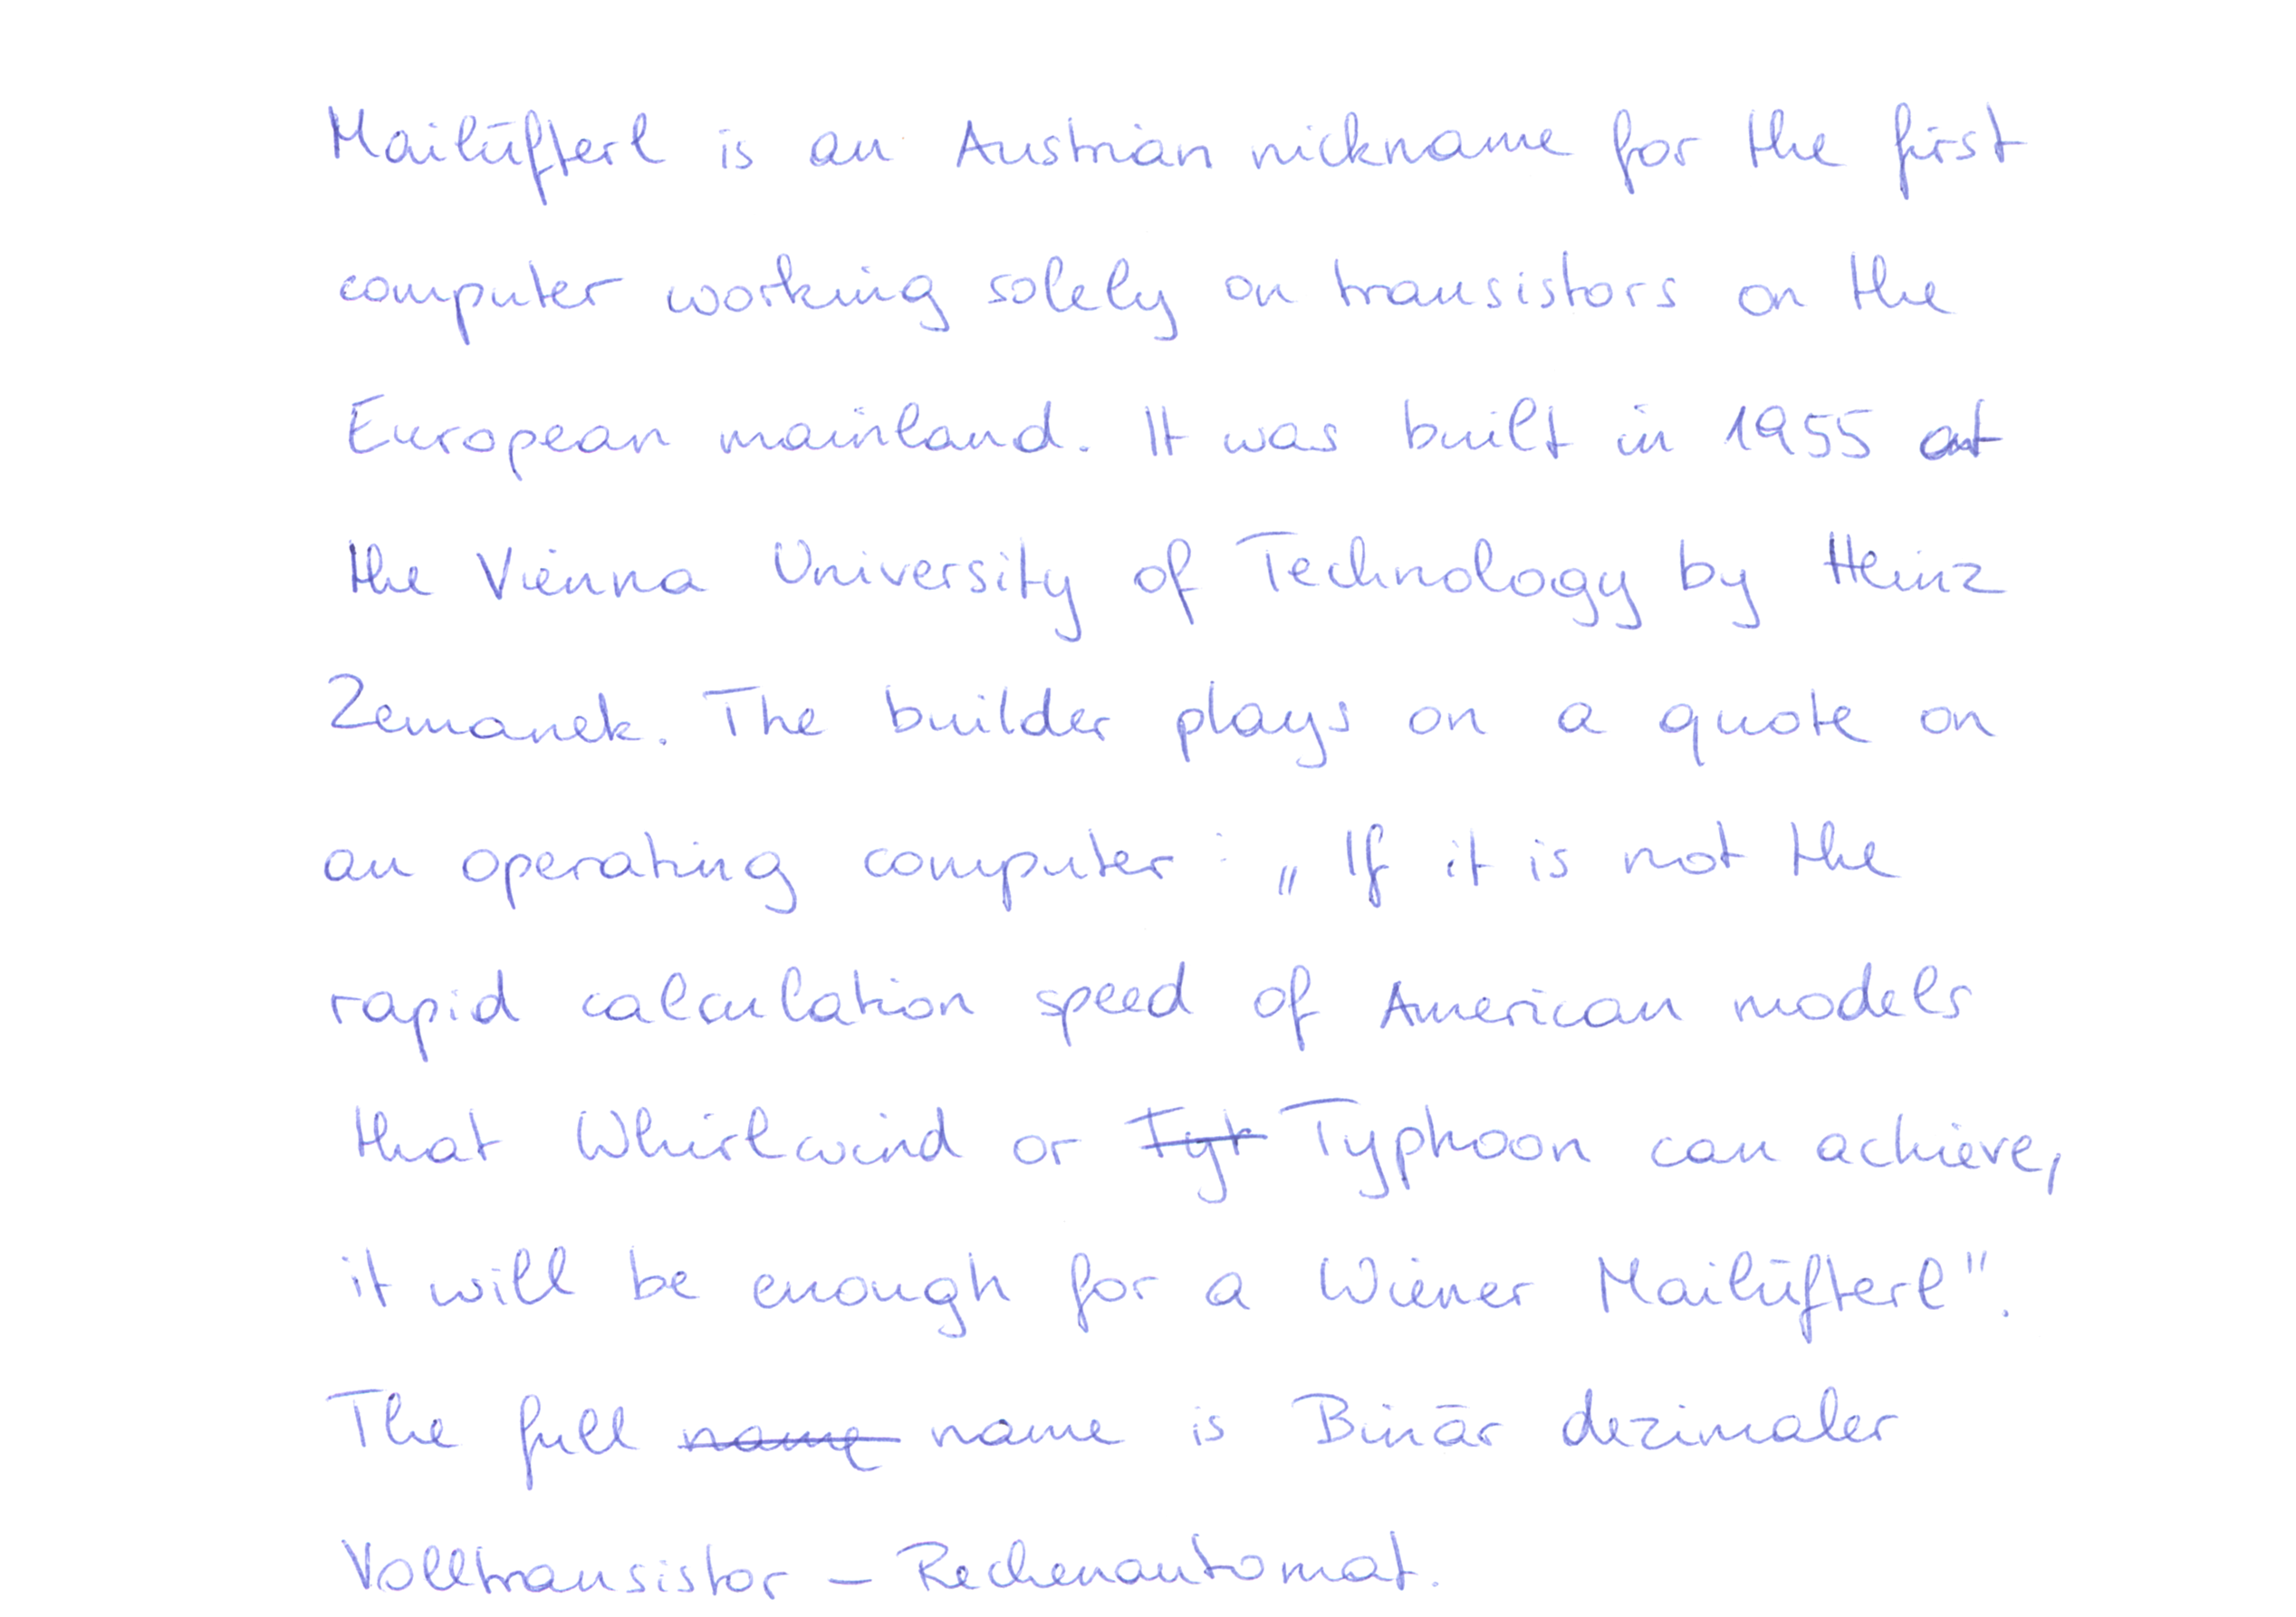 Mailüfterl is an Austrian nickname for the first
computer working solely on transistors on the
European mainland. It was built in 1955 at
the Vienna University of Technology by Heinz
Zemanek. The builder plays on a quote on
an operating computer: „If it is not the
rapid calculation speed of American models
that Whirlwind or Typhoon can achieve,
it will be enough for a Wiener Mailüfterl".
The full name name is Binär dezimaler
Volltransistor - Rechenautomat.